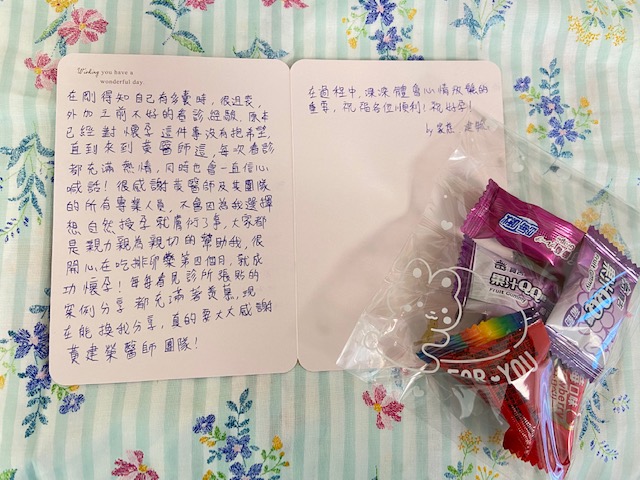 Wishing you have a
wonderful day.
在剛得知自己有多囊時，很沮喪，
外加之前不好的看診經驗，原本
已經對懷孕這件事沒有抱希望，
直到來到黃醫師這，每次看診
都充滿熱情，同時也會一直信心
喊話！很感謝黃醫師及其團隊
的所有專業人員，不會因為我選擇
想自然授孕就膚衍了事，大家都
是親力親為親切的幫助我，很
開心在吃排卵藥第四個月，就成
功懷孕！每每看見診所張貼的
案例分享都充滿著羨慕，現
在能換我分享，真的要大大感謝
黃建榮醫師團隊！
在過程中，深深體會心情放鬆的
重要，祝福各位順利！祝好孕！
by
果汁QQ
FRUIT Gummy
果汁QQ
FOR YOU